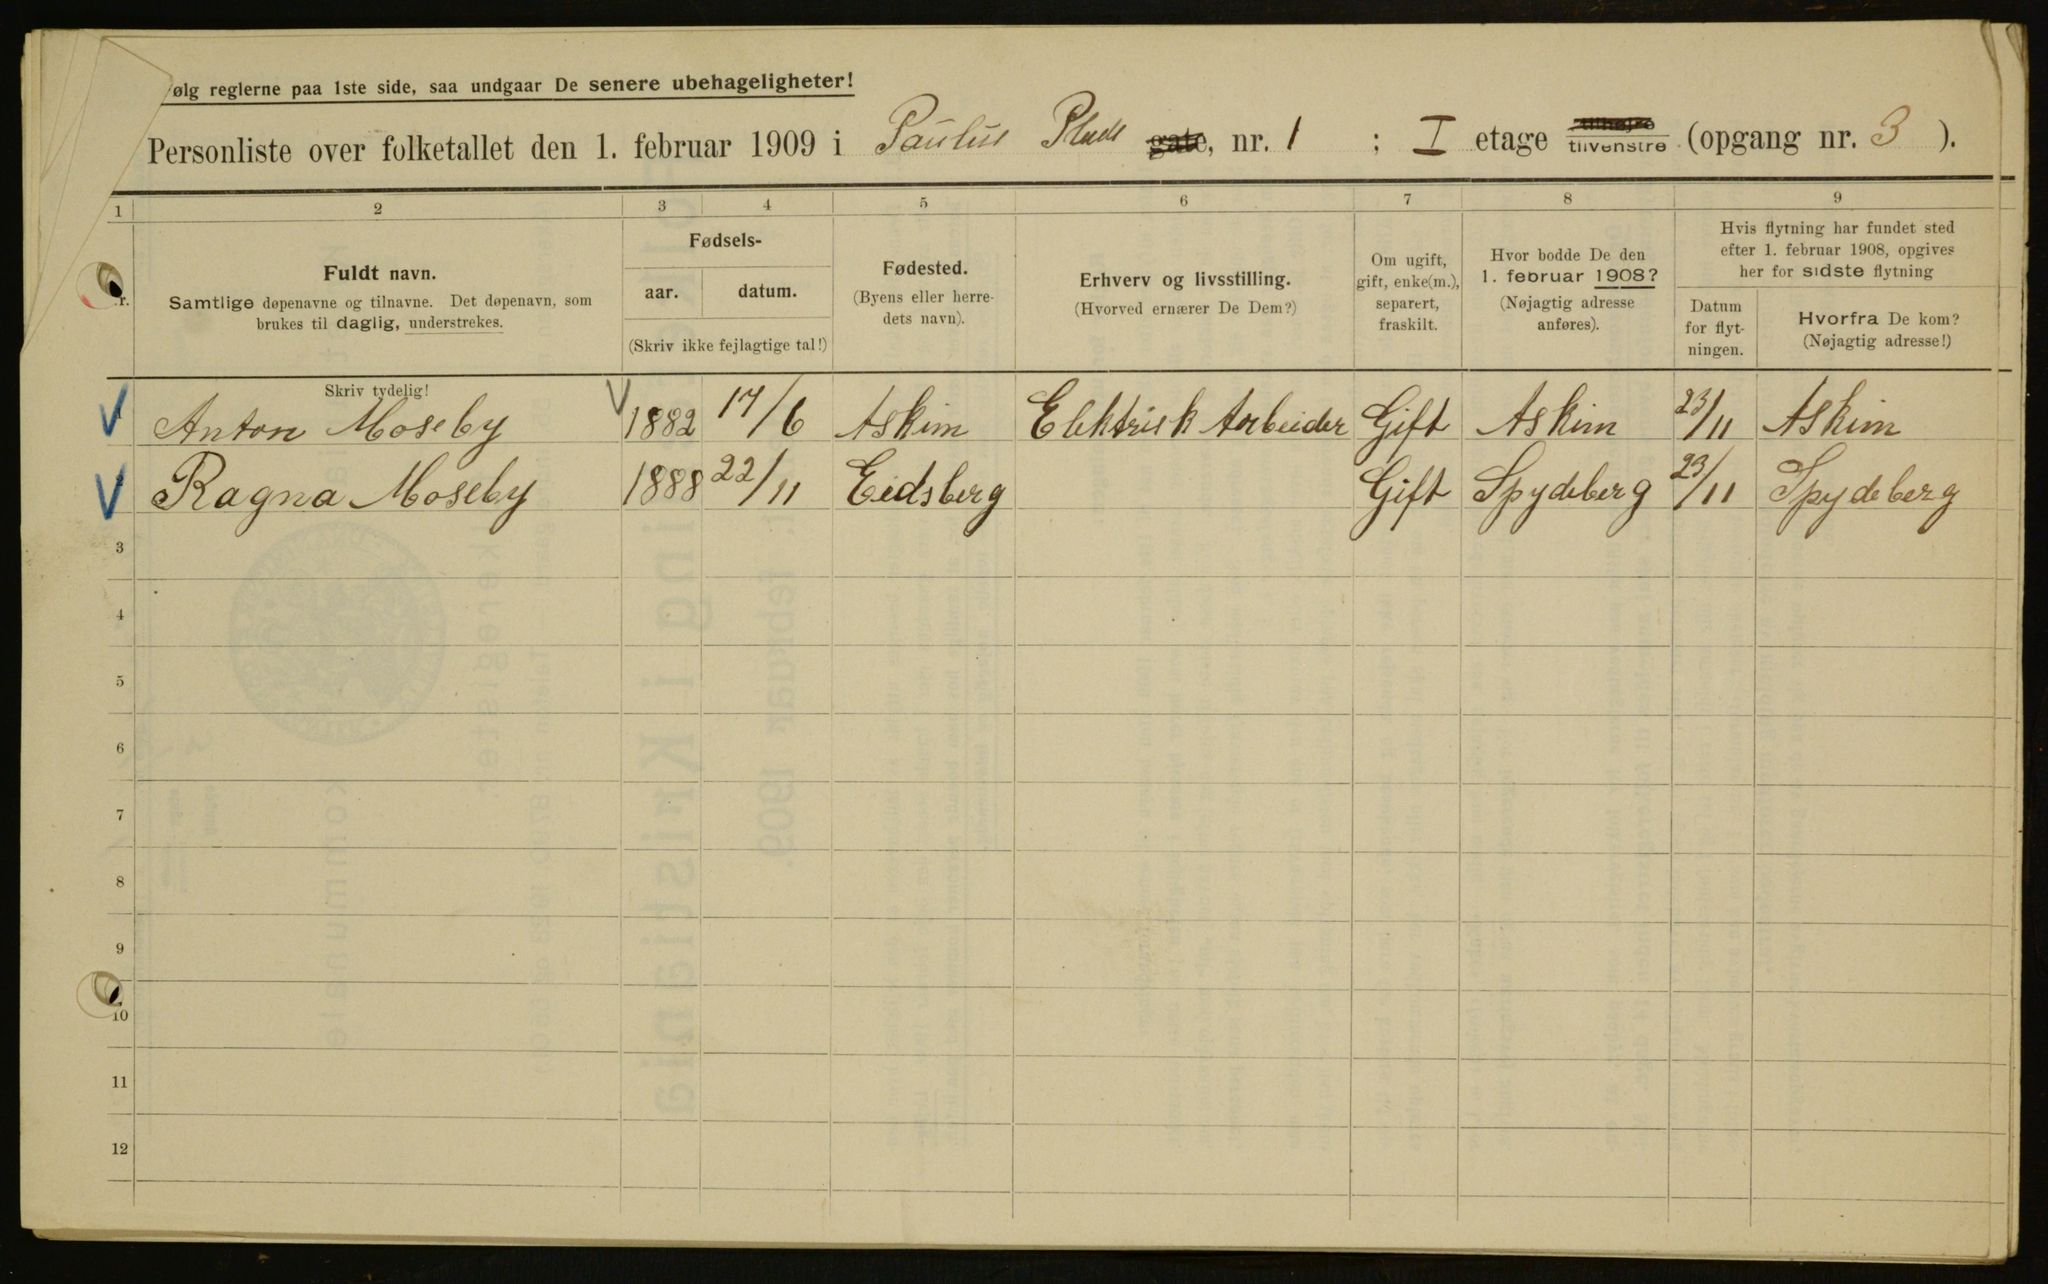 ølg reglerne paa 1ste side, saa undgaar De senere ubehageligheter!
Personliste over folketallet den 1. februar 1909 i Paulus Plads gate, nr. 1 ; I etage tilhøjre tilvenstre (opgang nr. 3 ).
1 2 3 4 5 6 7 8 9
r.
Fuldt navn.
Samtlige døpenavne og tilnavne. Det døpenavn, som
brukes til daglig, understrekes.
Fødsels-
aar. datum.
(Skriv ikke fejlagtige tal!)
Fødested.
(Byens eller herre-
dets navn).
Erhverv og livsstilling.
(Hvorved ernærer De Dem?)
Om ugift,
gift, enke(m.),
separert,
fraskilt.
Hvor bodde De den
1. februar 1908?
(Nøjagtig adresse
anføres).
Hvis flytning har fundet sted
efter 1. februar 1908, opgives
her for sidste flytning
Datum
for flyt-
ningen.
Hvorfra De kom?
(Nøjagtig adresse!)
Skriv tydelig!
1 Anton Moseby 1882 17/6 Askim Elektrisk Arbeider Gift Askim 23/11 Askim
Ragna Moseby 1888 22/11 Eidsberg Gift Spydeberg 23/11 Spydeberg
3
4
5
6
7
8
9
10
11
12